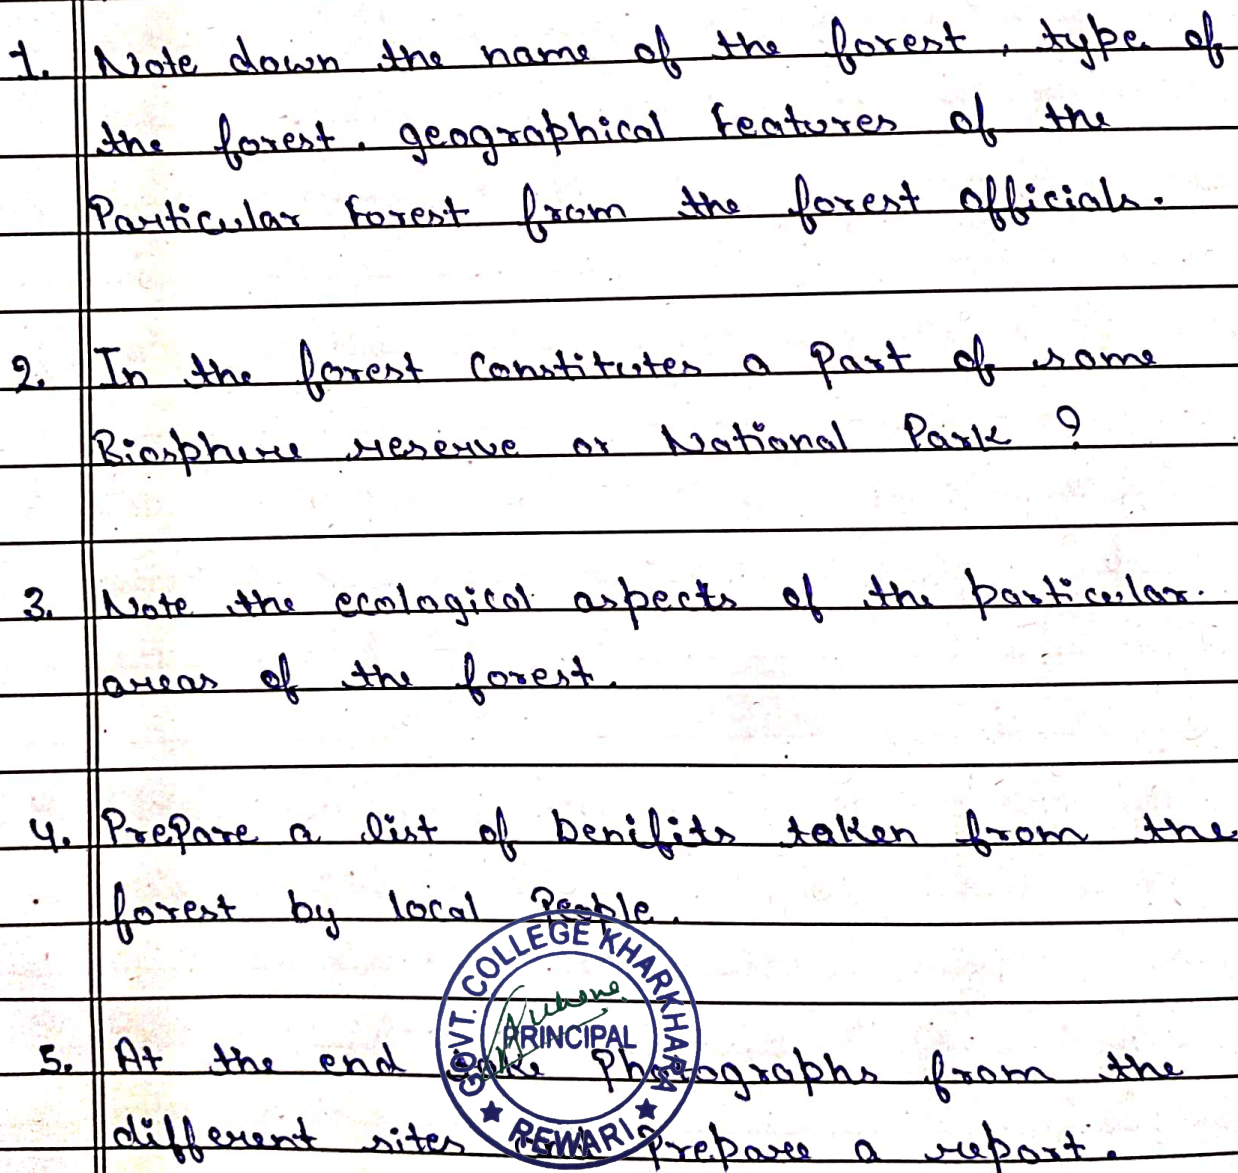 1. Note down the name of the forest, type of
the forest. geographical features of the
Particular forest from the forest officials.
2. In the forest Constitutes a Part of some
Biosphere reserve or National Park ?
3. Note the ecological aspects of the particular.
areas of the forest.
4. Prepare a list of benifits taken from the
forest by local People.
GOVT. COLLEGE KHARKHARA
PRINCIPAL
★ REWARI ★
5. At the end take Photographs from the
different sites prepare a report.